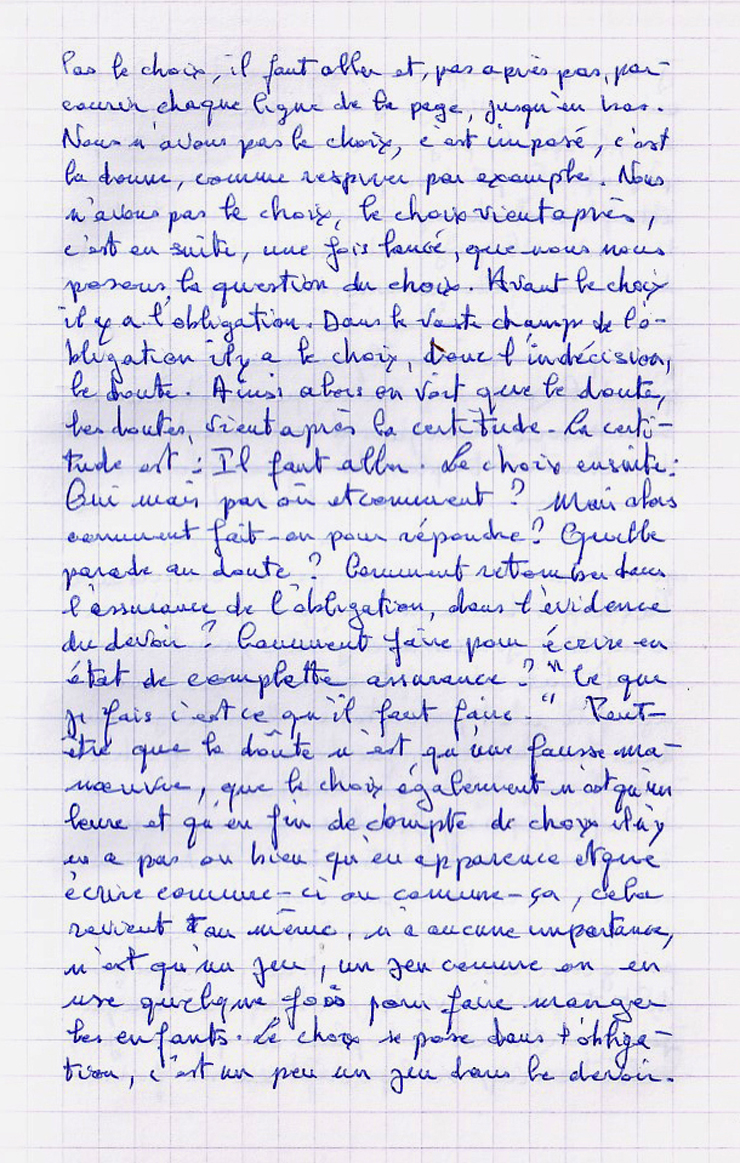 Pas le choix, il faut aller et, pas après pas, par-
courir chaque ligne de la page, jusqu'en bas.
Nous n'avons pas le choix, c'est imposé, c'est
la donne, comme respirer par exemple. Nous
n'avons pas le choix, le choix vient après,
c'est ensuite, une fois lancé, que nous nous
posons la question du choix. Avant le choix
il y a l'obligation. Dans le vaste champ de l'o-
bligation il y a le choix, donc l'indécision,
le doute. Ainsi alors on voit que le doute,
les doutes, vient après la certitude. La certi-
tude est : Il faut aller. Le choix ensuite :
Oui mais par où et comment ? Mais alors
comment fait-on pour répondre ? Quelle
parade au doute ? Comment retomber dans
l'assurance de l'obligation, dans l'évidence
du devoir ? Comment faire pour écrire en
état de complette assurance ? "Ce que
je fais c'est ce qu'il faut faire." Peut-
être que le doûte n'est qu'une fausse ma-
nœuvre, que le choix également n'est qu'un
leurre et qu'en fin de compte de choix il n'y
en a pas ou bien qu'en apparence et que
écrire comme-ci ou comme-ça, cela
revient au même, n'a aucune importance,
n'est qu'un jeu, un jeu comme on en
use quelque fois pour faire manger
les enfants. Le choix se pose dans l'obliga-
tion, c'est un peu un jeu dans le devoir.